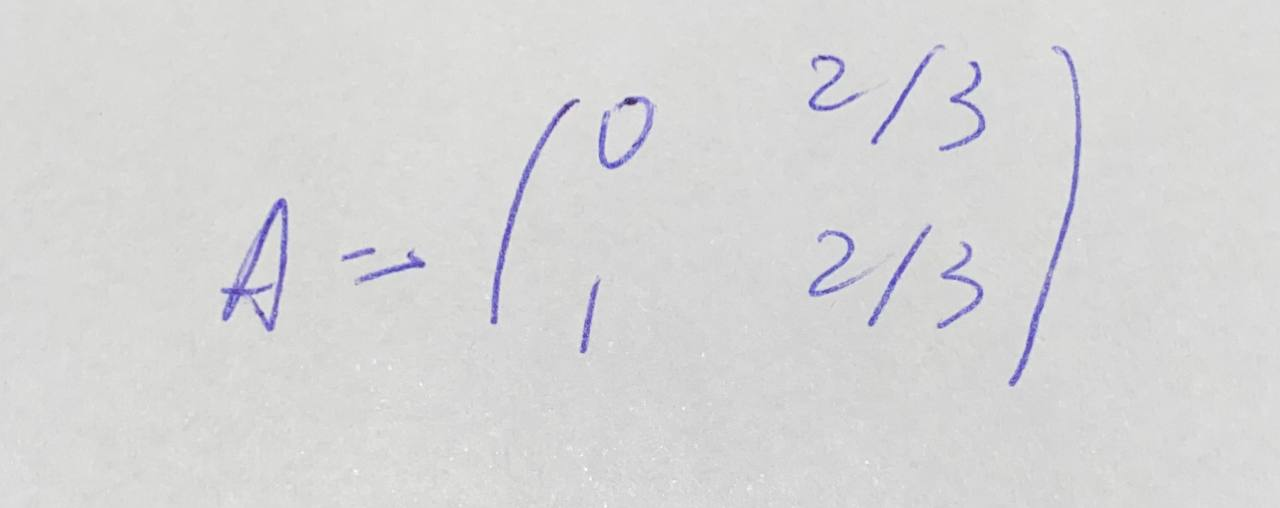 A = ( 0 2/3
1 2/3 )